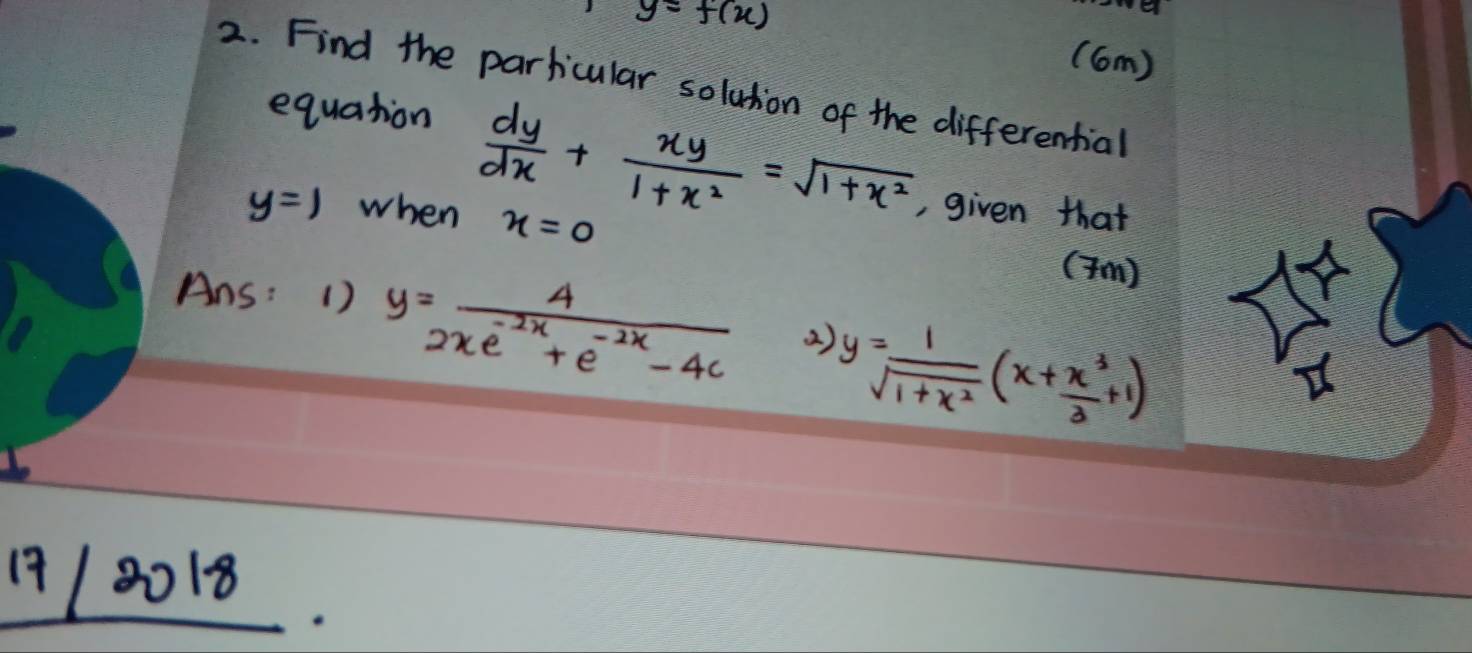 y = f(x)
(6m)
2. Find the particular solution of the differential
equation dy/dx + xy/(1+x²) = √(1+x²), given that
y=1 when x=0
(7m)
Ans: 1) y = 4/(2xe^(-2x) + e^(-2x) - 4c) 2) y = 1/√(1+x²) (x + x³/3 + 1)
17/2018.